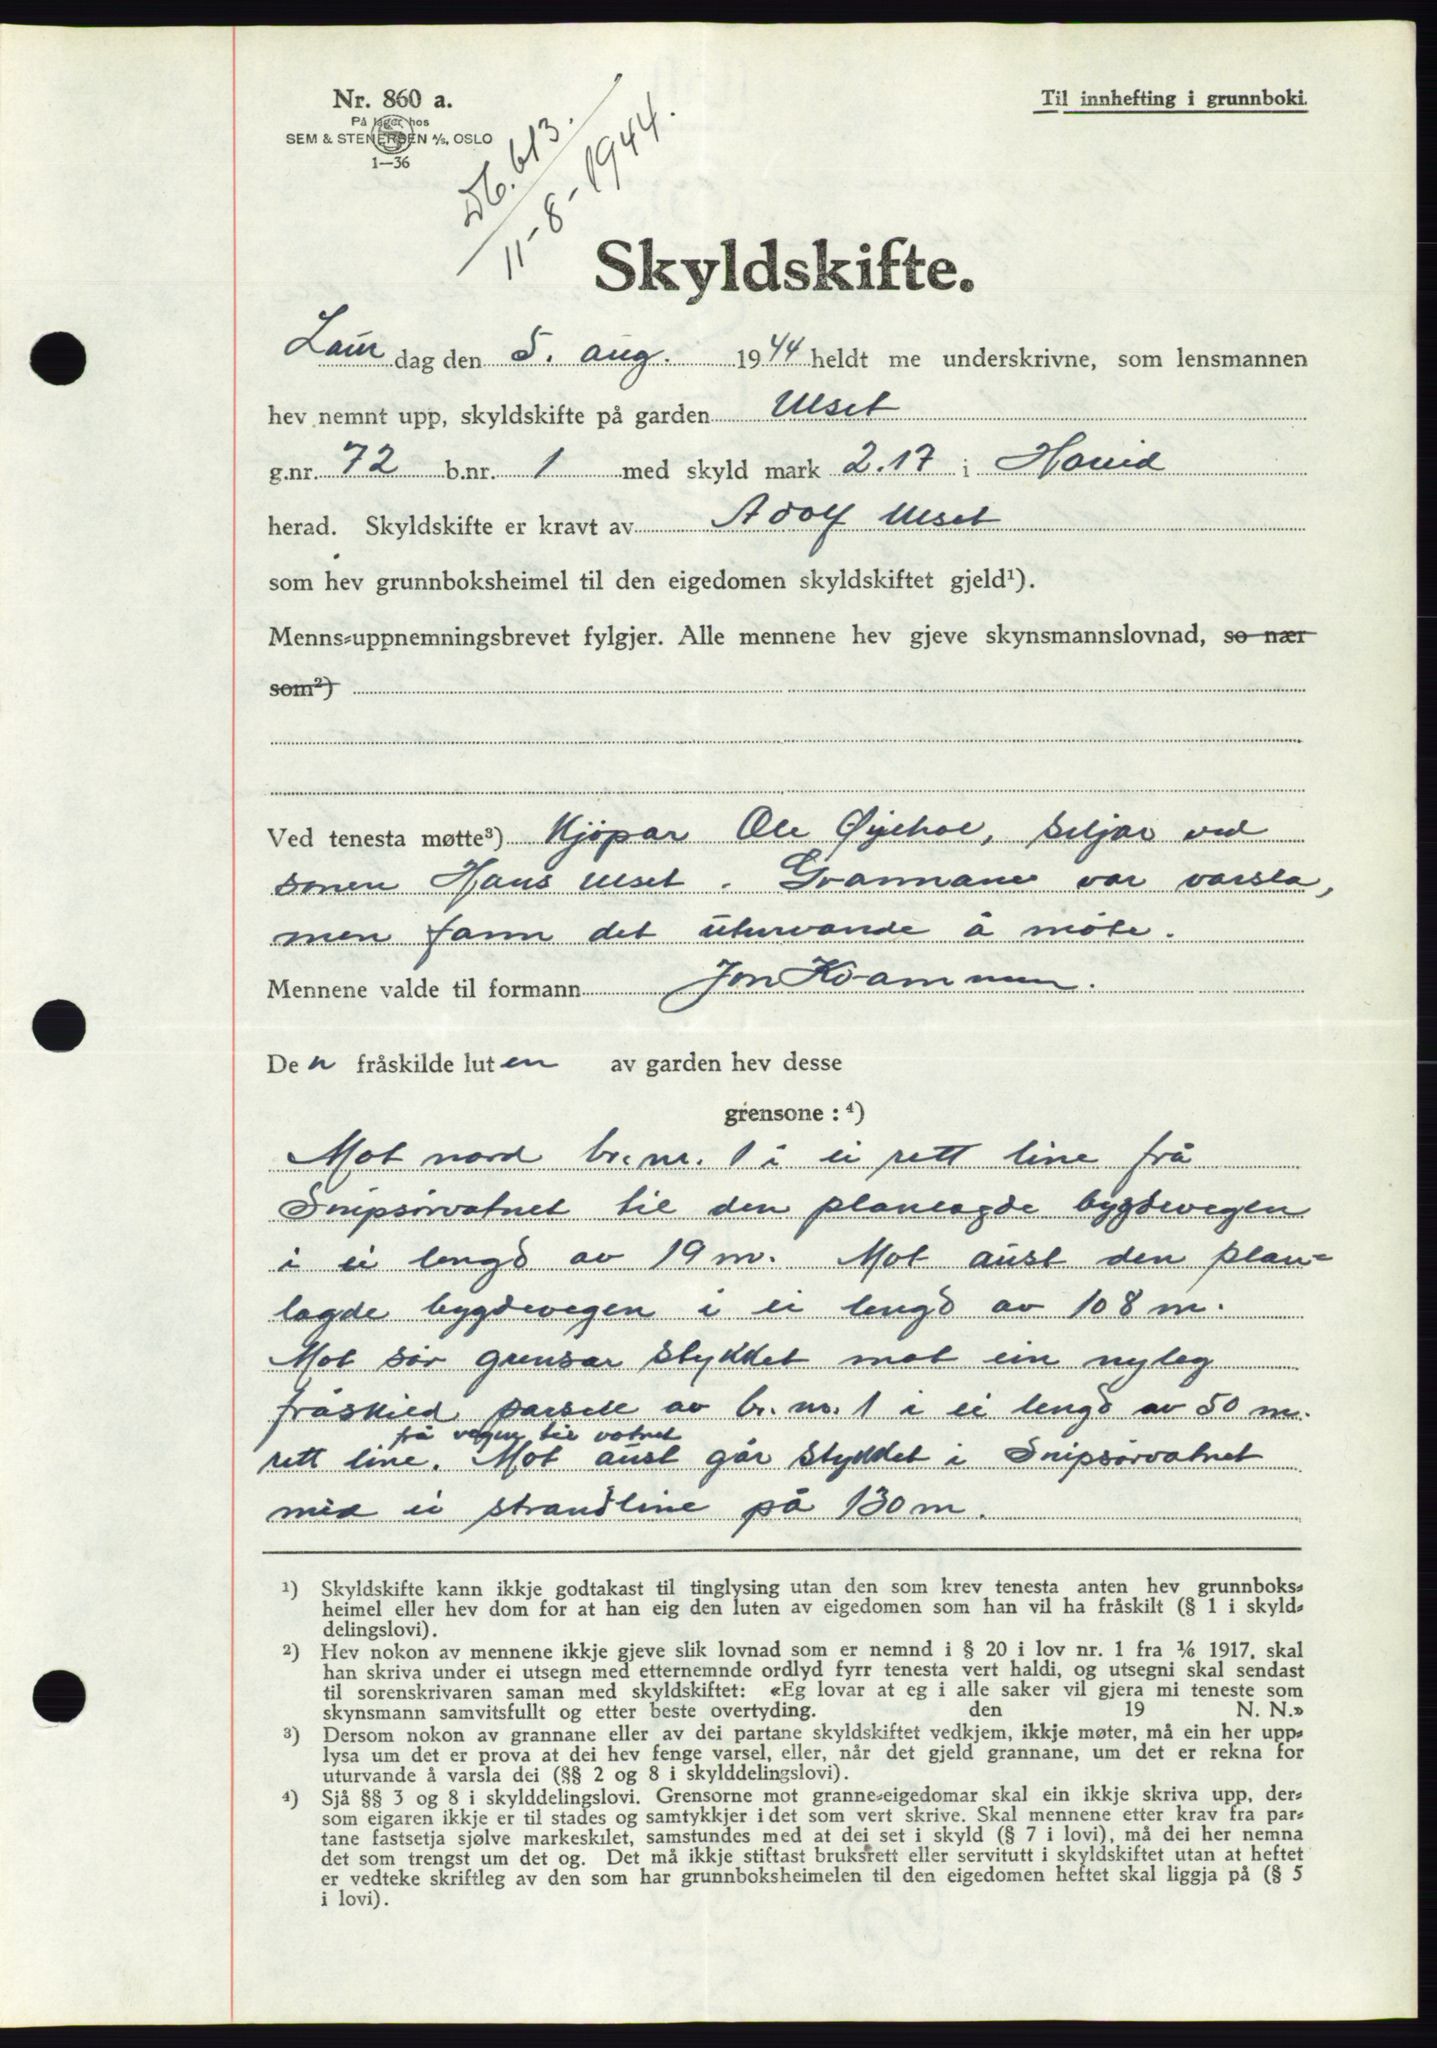 Nr. 860 a.
På lager hos
SEM & STENERSEN A/S, OSLO
1—36
Til innhefting i grunnboki.
Db. 613.
11-8-1944.
Skyldskifte.
Laur dag den 5. aug. 1944 heldt me underskrivne, som lensmannen
hev nemnt upp, skyldskifte på garden Ulset
g.nr. 72 b.nr. 1 med skyld mark 2.17 i Hareid
herad. Skyldskifte er kravt av Adolf Ulset
som hev grunnboksheimel til den eigedomen skyldskiftet gjeld¹).
Menns-uppnemningsbrevet fylgjer. Alle mennene hev gjeve skynsmannslovnad, so nær
som²)
Ved tenesta møtte³) Kjøpar Ole, seljar ved
sonen Hans Ulset. Grannane var varsla,
men fann det uturvande å møte.
Mennene valde til formann Jon Kvammen.
Den fråskilde luten av garden hev desse
grensone : ⁴)
Mot nord br. nr. 1 i ei rett line frå
Snipsørvatnet til den planlagde bygdevegen
i ei lengd av 19 m. Mot aust den plan=
lagde bygdevegen i ei lengd av 108 m.
Mot sør grensar stykket mot ein nyleg
fråskild parsell av br. nr. 1 i ei lengd av 50 m.
frå vegen til vatnet
rett line. Mot aust går stykket i Snipsørvatnet
med ei strandline på 130 m.
¹) Skyldskifte kann ikkje godtakast til tinglysing utan den som krev tenesta anten hev grunnboks-
heimel eller hev dom for at han eig den luten av eigedomen som han vil ha fråskilt (§ 1 i skyld-
delingslovi).
²) Hev nokon av mennene ikkje gjeve slik lovnad som er nemnd i § 20 i lov nr. 1 fra 1/6 1917, skal
han skriva under ei utsegn med etternemnde ordlyd fyrr tenesta vert haldi, og utsegni skal sendast
til sorenskrivaren saman med skyldskiftet: «Eg lovar at eg i alle saker vil gjera mi teneste som
skynsmann samvitsfullt og etter beste overtyding. den 19 N. N.»
³) Dersom nokon av grannane eller av dei partane skyldskiftet vedkjem, ikkje møter, må ein her upp-
lysa um det er prova at dei hev fenge varsel, eller, når det gjeld grannane, um det er rekna for
uturvande å varsla dei (§§ 2 og 8 i skylddelingslovi).
⁴) Sjå §§ 3 og 8 i skylddelingslovi. Grensorne mot granne-eigedomar skal ein ikkje skriva upp, der-
som eigaren ikkje er til stades og samtykkjer i det som vert skrive. Skal mennene etter krav fra par-
tane fastsetja sjølve markeskilet, samstundes med at dei set i skyld (§ 7 i lovi), må dei her nemna
det som trengst um det og. Det må ikkje stiftast bruksrett eller servitutt i skyldskiftet utan at heftet
er vedteke skriftleg av den som har grunnboksheimelen til den eigedomen heftet skal liggja på (§ 5
i lovi).